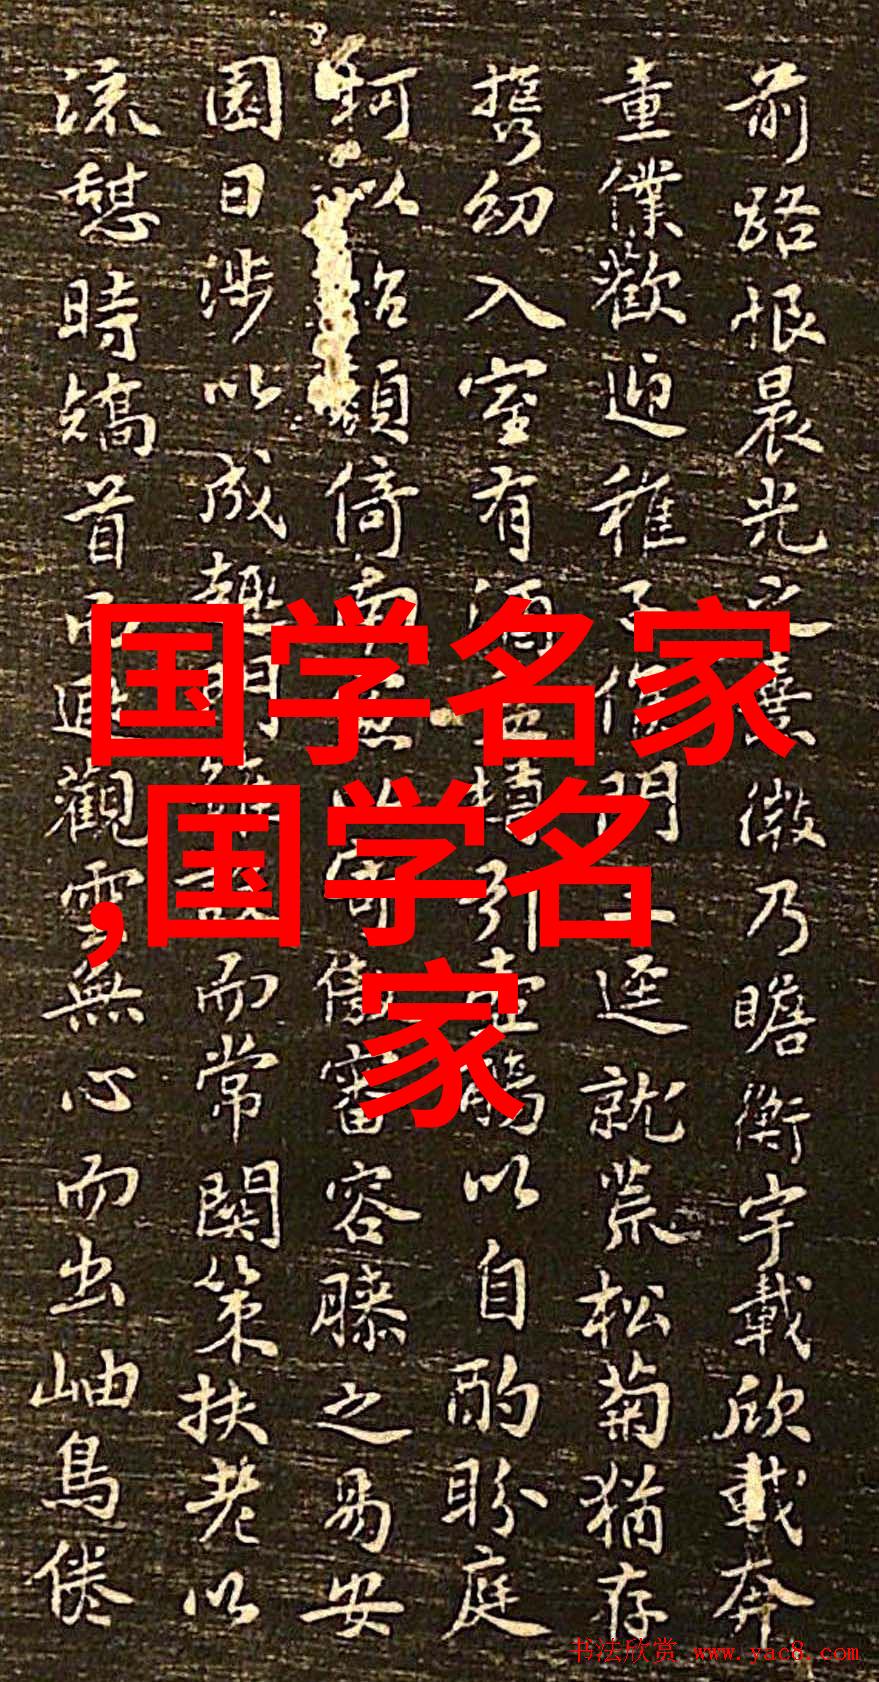 前路恨晨光之熹微乃瞻衡宇載欣載奔
童僕歡迎稚子候門三逕就荒松菊猶存
携幼入室有酒盈樽引壺觴以自酌盼庭
柯以怡顏倚南窓以寄傲審容膝之易安
園日涉以成趣門雖設而常関策扶老以
流憩時矯首而遐觀雲無心而出岫鳥倦
国学名家
,国学名
家
书法欣赏 www.yac8.com